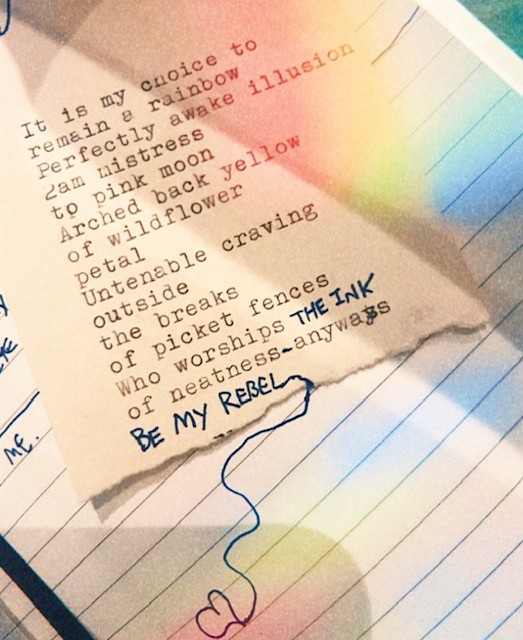 It is my choice to
remain a rainbow
Perfectly awake illusion
2am mistress
to pink moon
Arched back yellow
of wildflower
petal
Untenable craving
outside
the breaks
of picket fences
Who worships THE INK
of neatness-anyways
BE MY REBEL
ME.